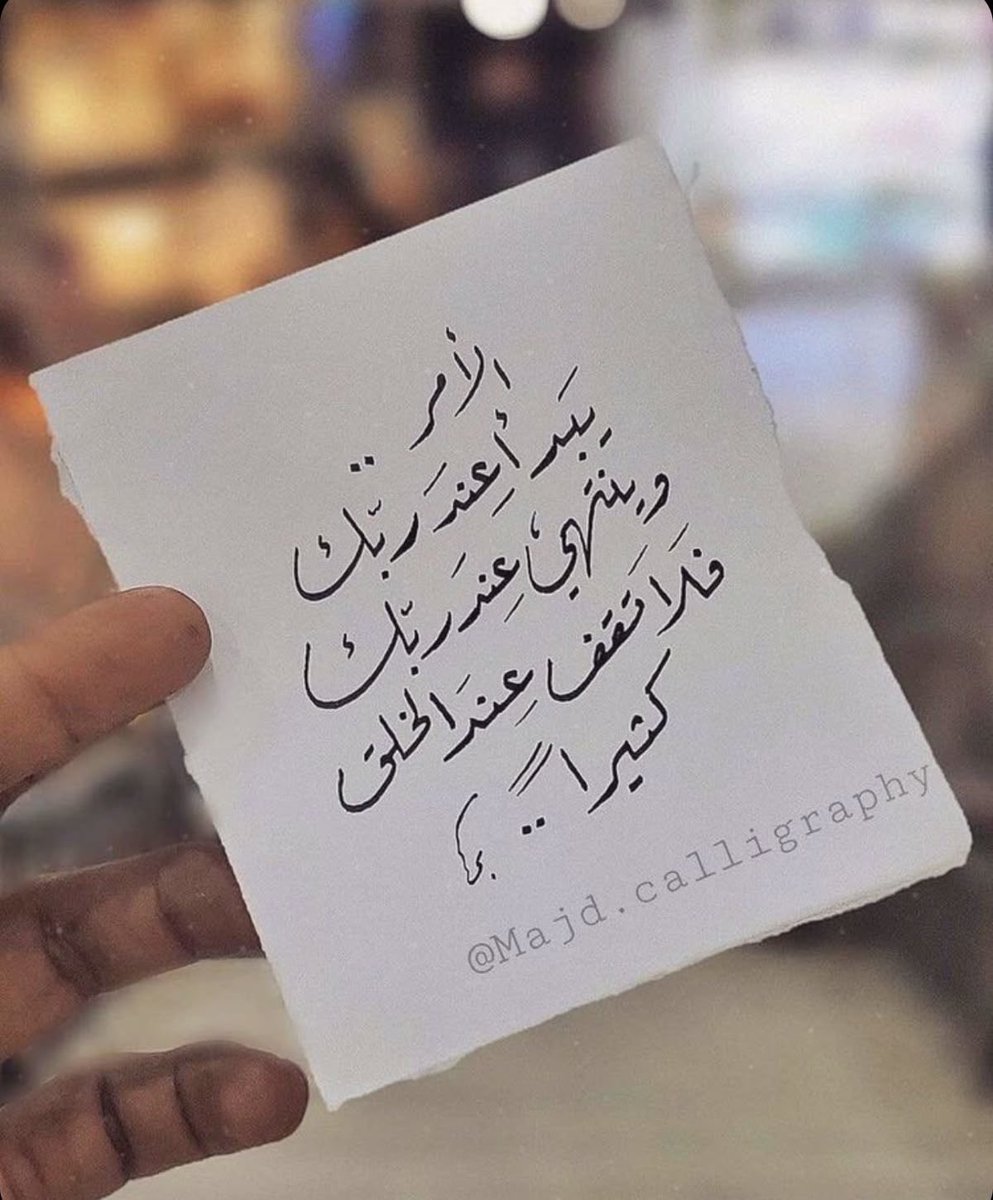 الأمر ..
يَبَدأ عِندَ ربّك
وينتهي عِندَ ربّك
فَلَا تَقف عِندَ الخلق
كثيراً ..
@Majd.calligraphy